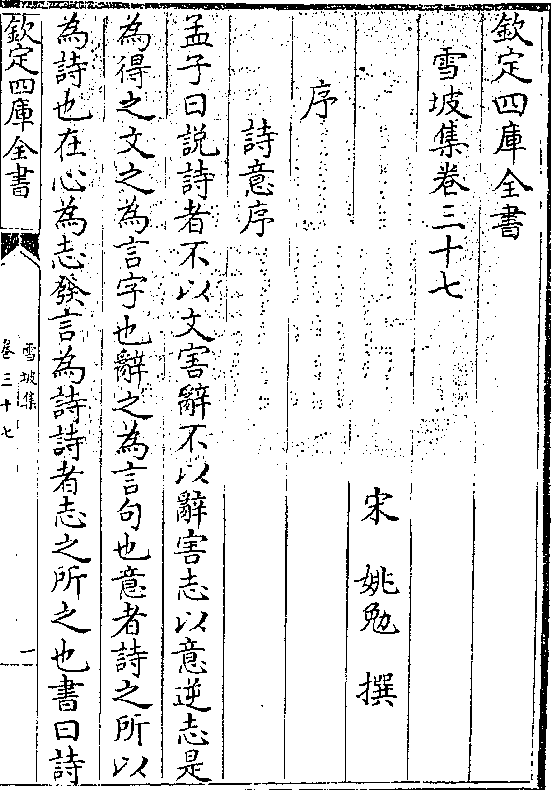 欽定四庫全書
雪坡集卷三十七
宋 姚勉 撰
序
詩意序
孟子曰說詩者不以文害辭不以辭害志以意逆志是
為得之文之為言字也辭之為言句也意者詩之所以
為詩也在心為志發言為詩詩者志之所之也書曰詩
欽定四庫全書
雪坡集
卷三十七
一